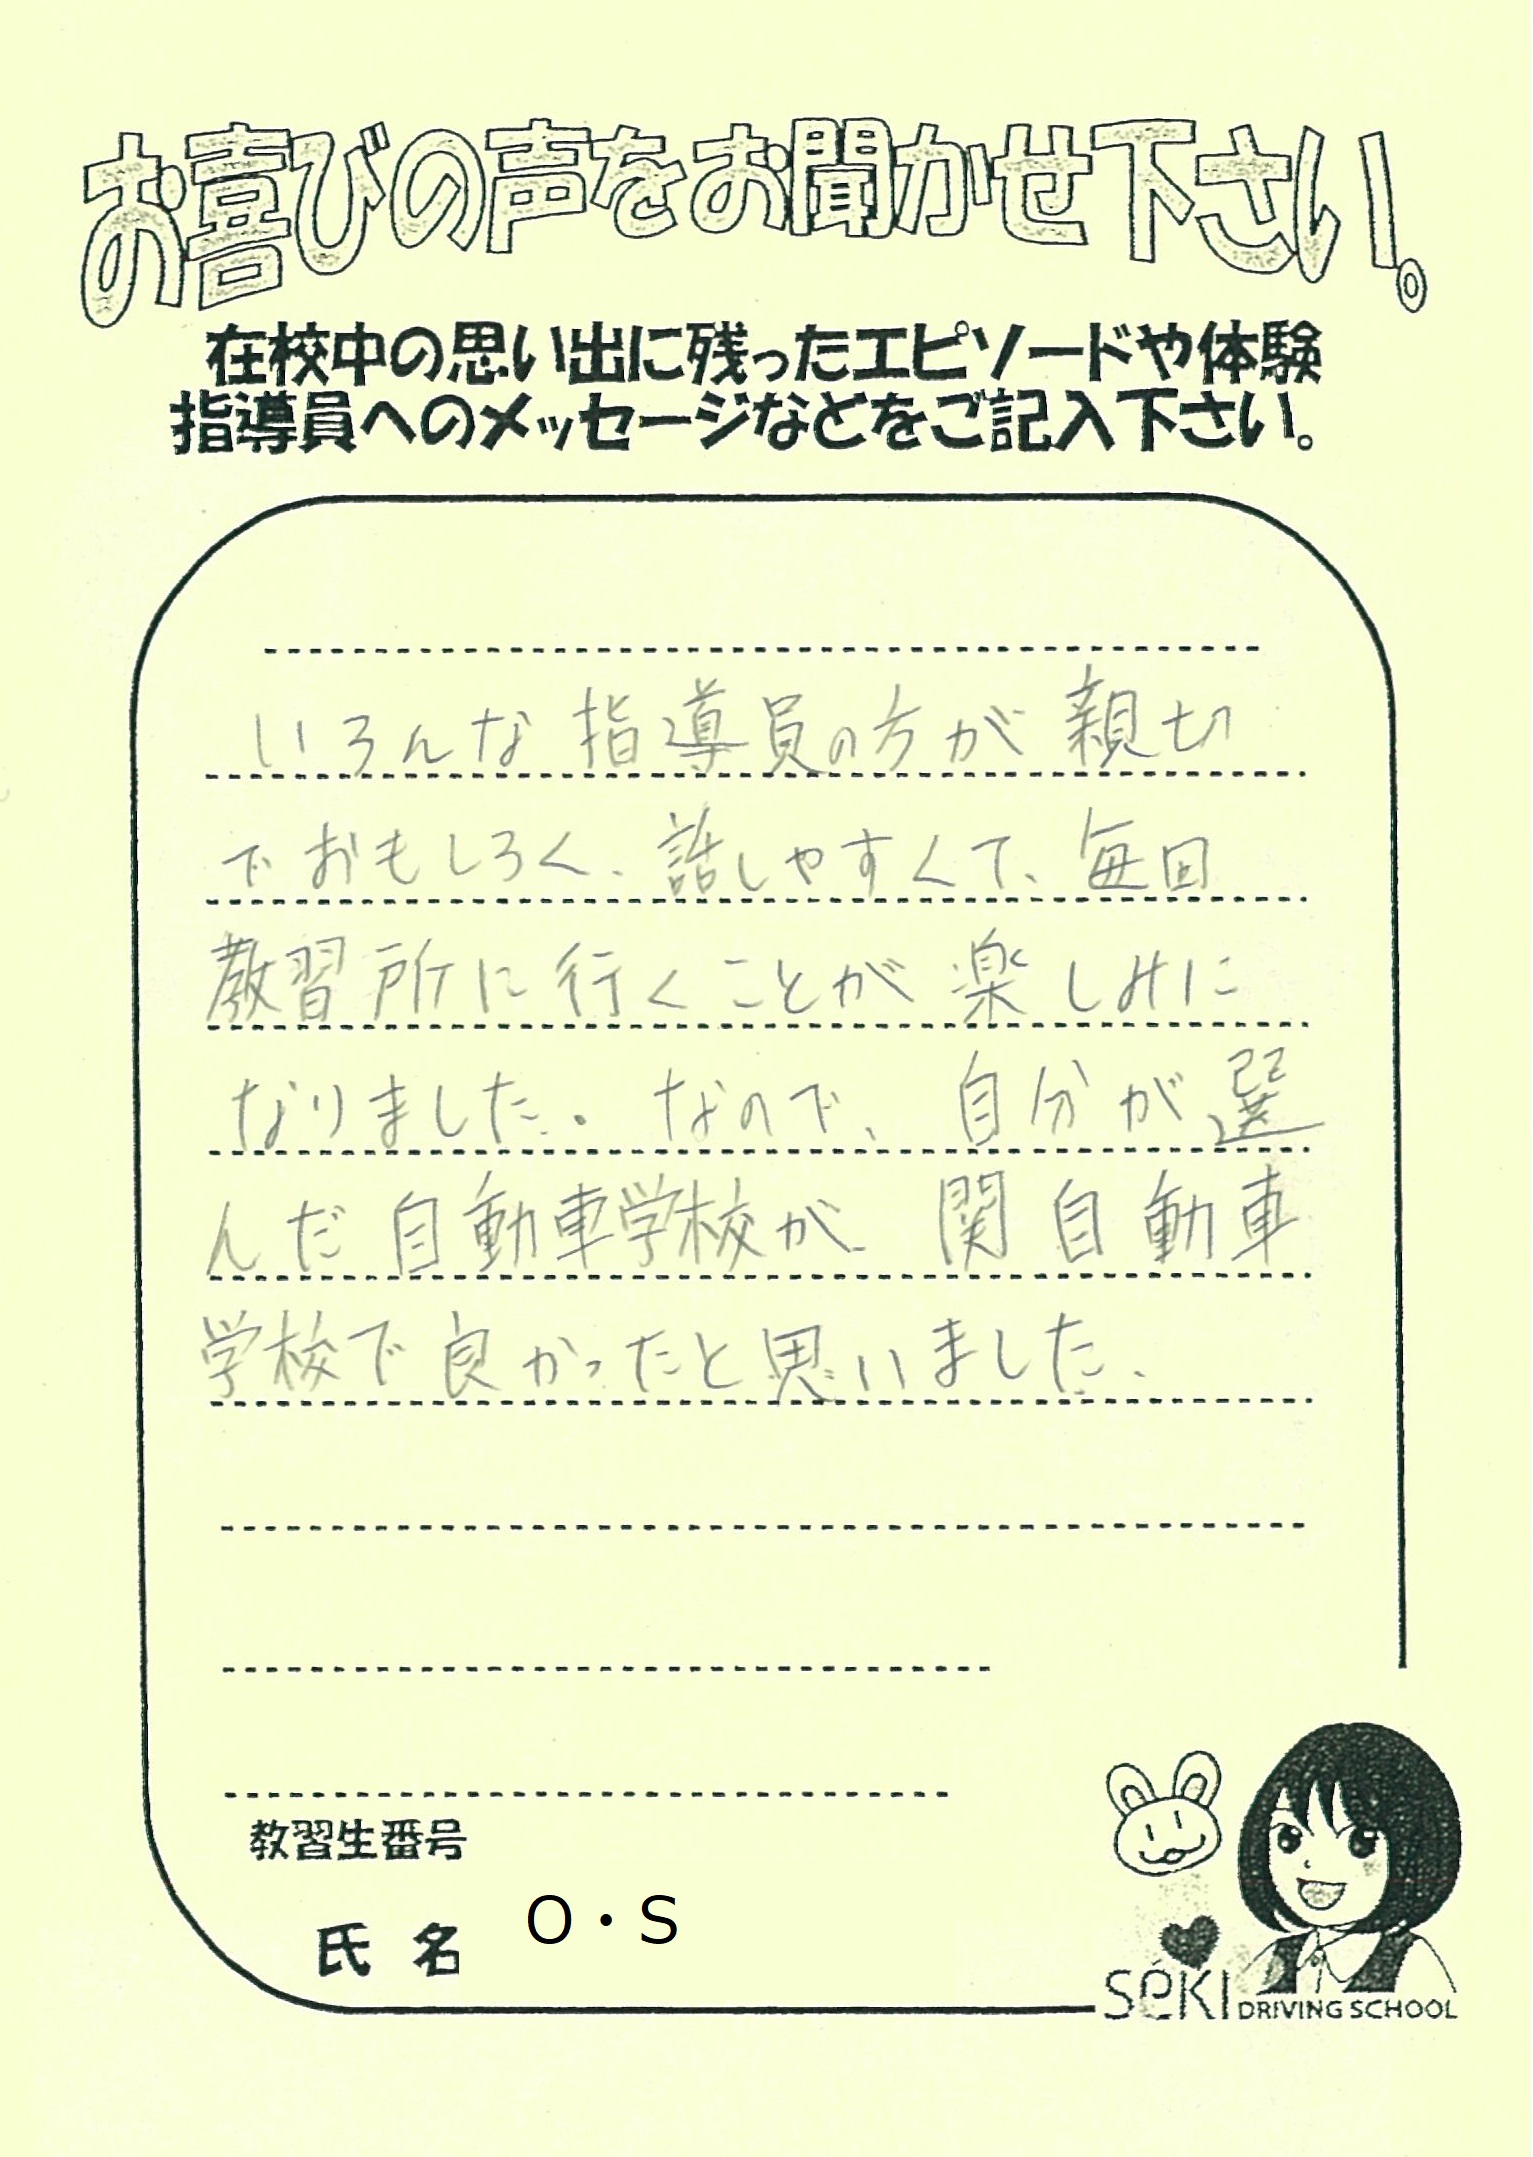 お喜びの声をお聞かせ下さい。
在校中の思い出に残ったエピソードや体験
指導員へのメッセージなどをご記入下さい。
いろんな指導員の方が親切
でおもしろく、話しやすくて、毎回
教習所に行くことが楽しみに
なりました。なので、自分が選
んだ自動車学校が、関自動車
学校で良かったと思いました、
教習生番号
氏名 O・S
SeKI DRIVING SCHOOL